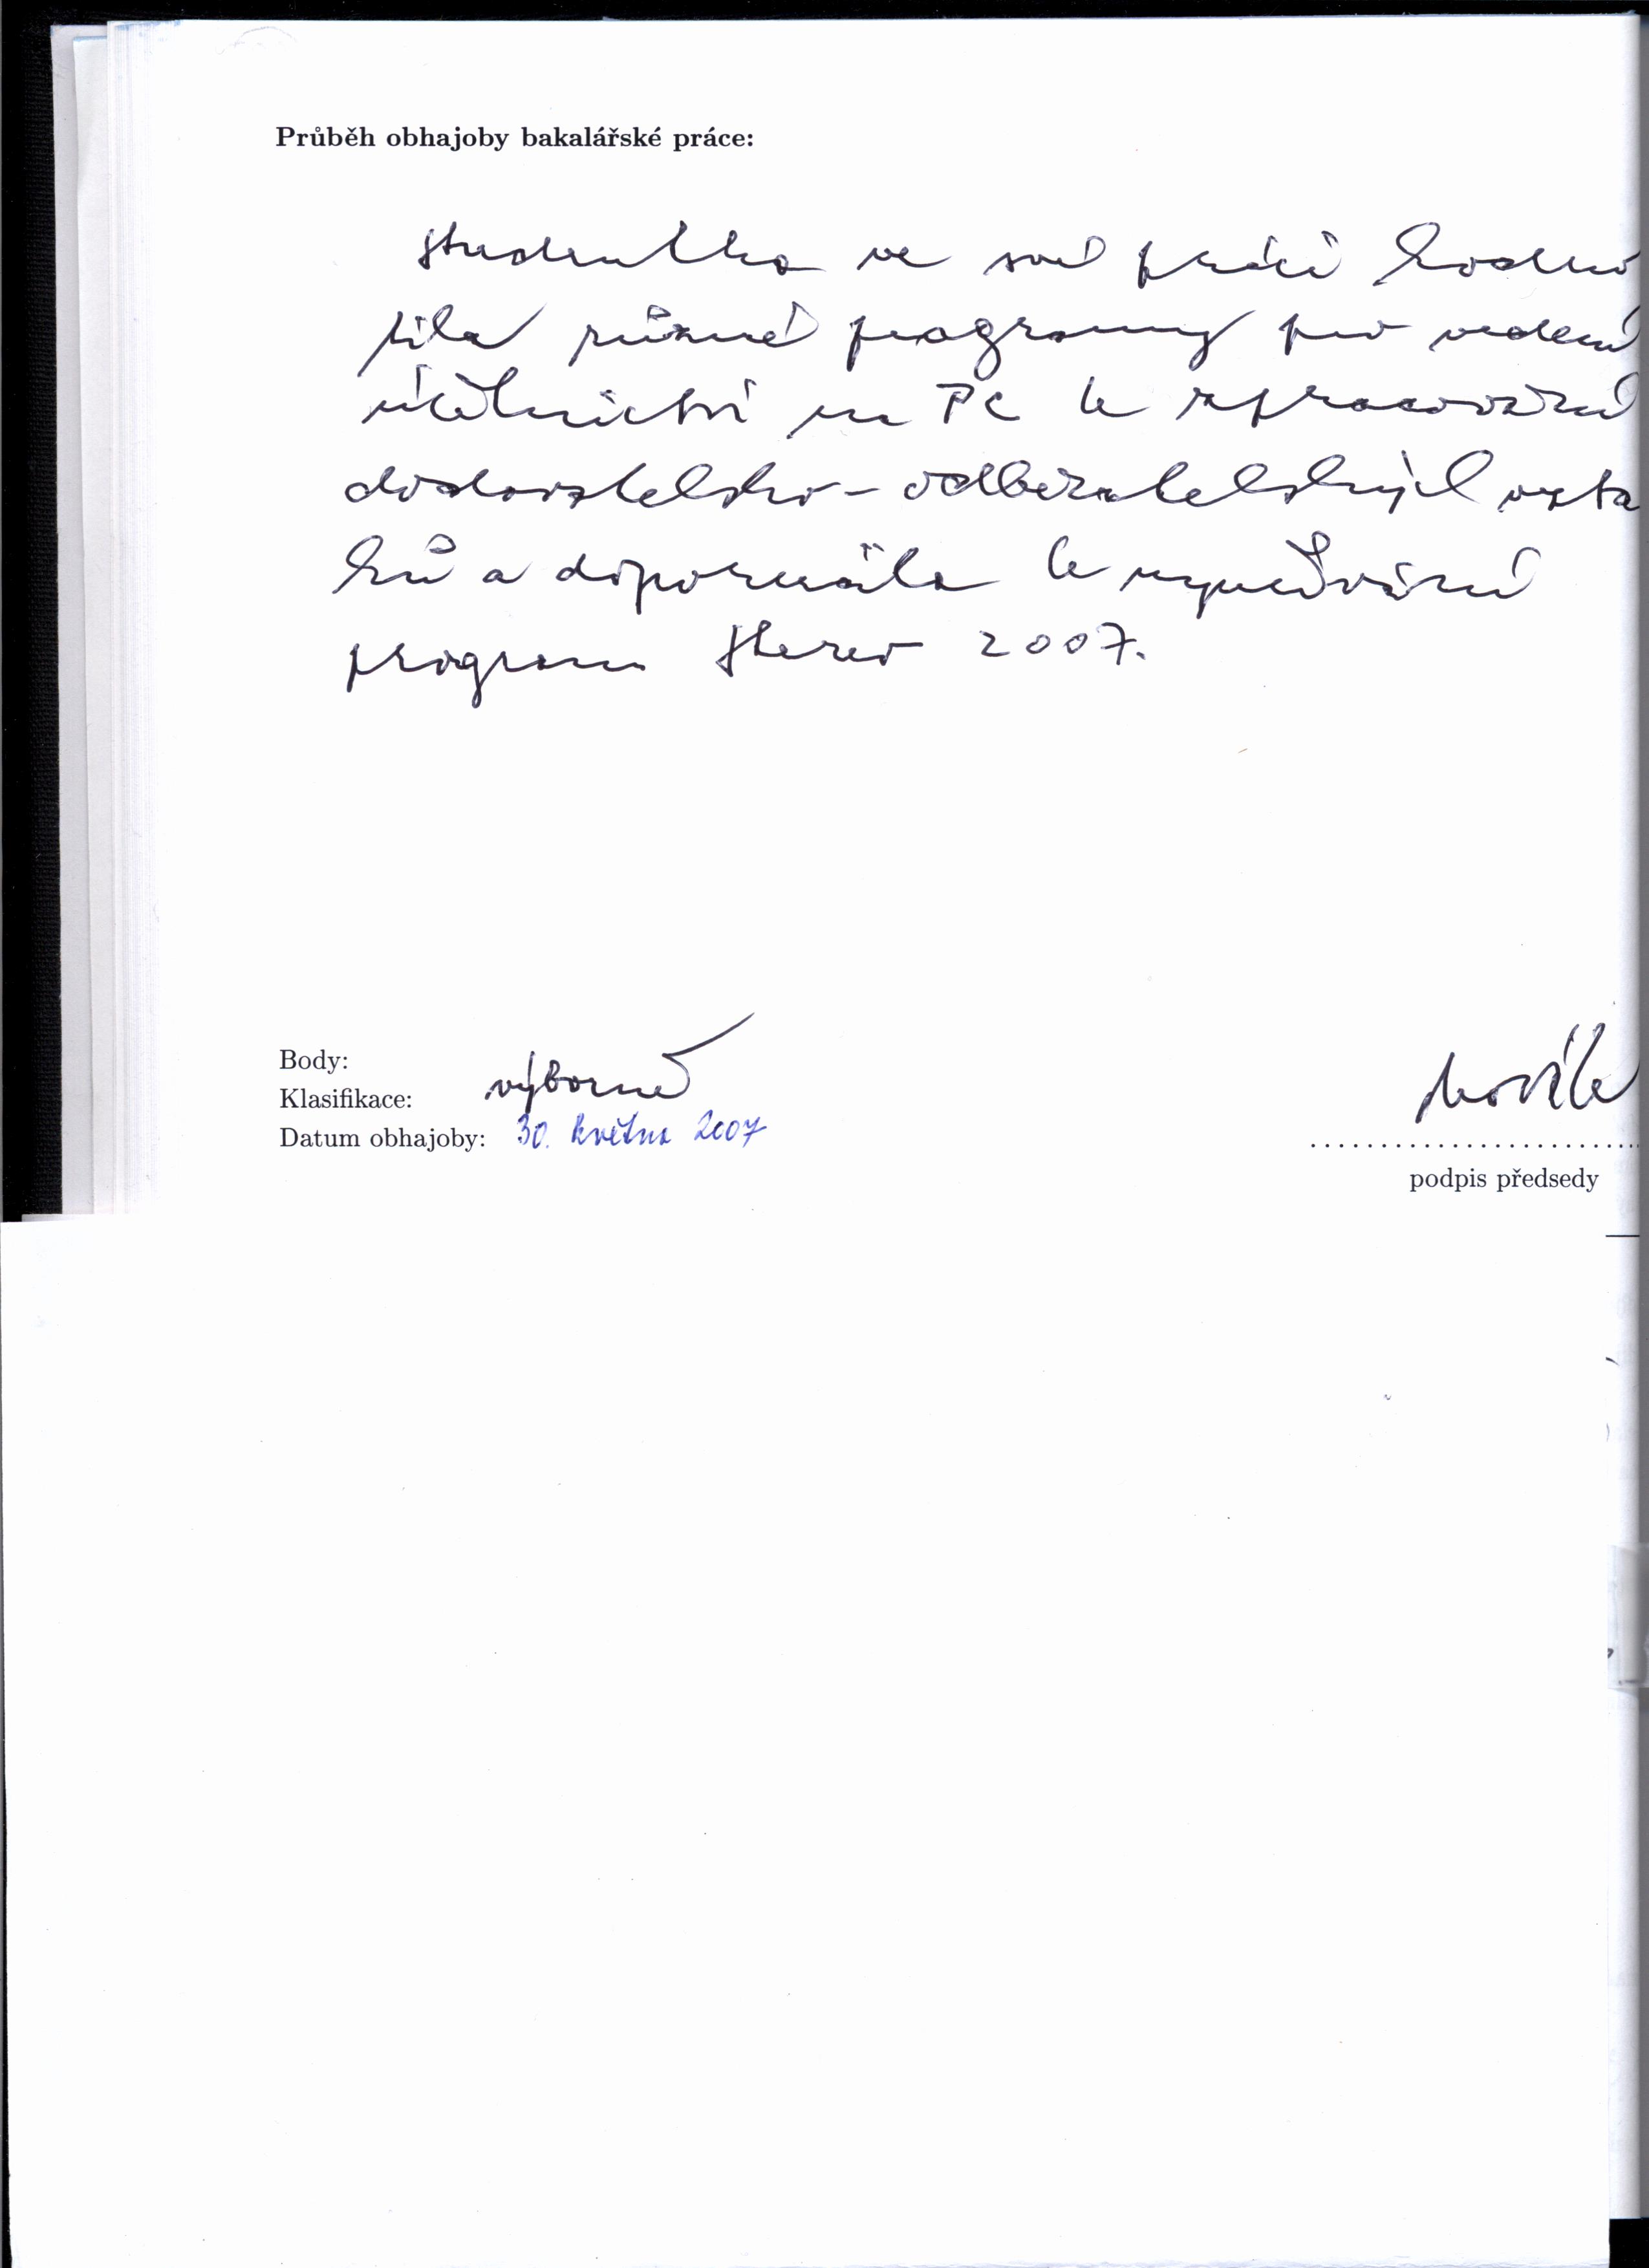 Průběh obhajoby bakalářské práce:
studentka ve své práci hodno
tila různé programy pro vedení
účetnictví na PC k zpracování
dodavatelsko-odběratelských vzta
hů a doporučila k využívání
program Stereo 2007.
Body:
Klasifikace: výborně
Datum obhajoby: 30. května 2007
podpis předsedy